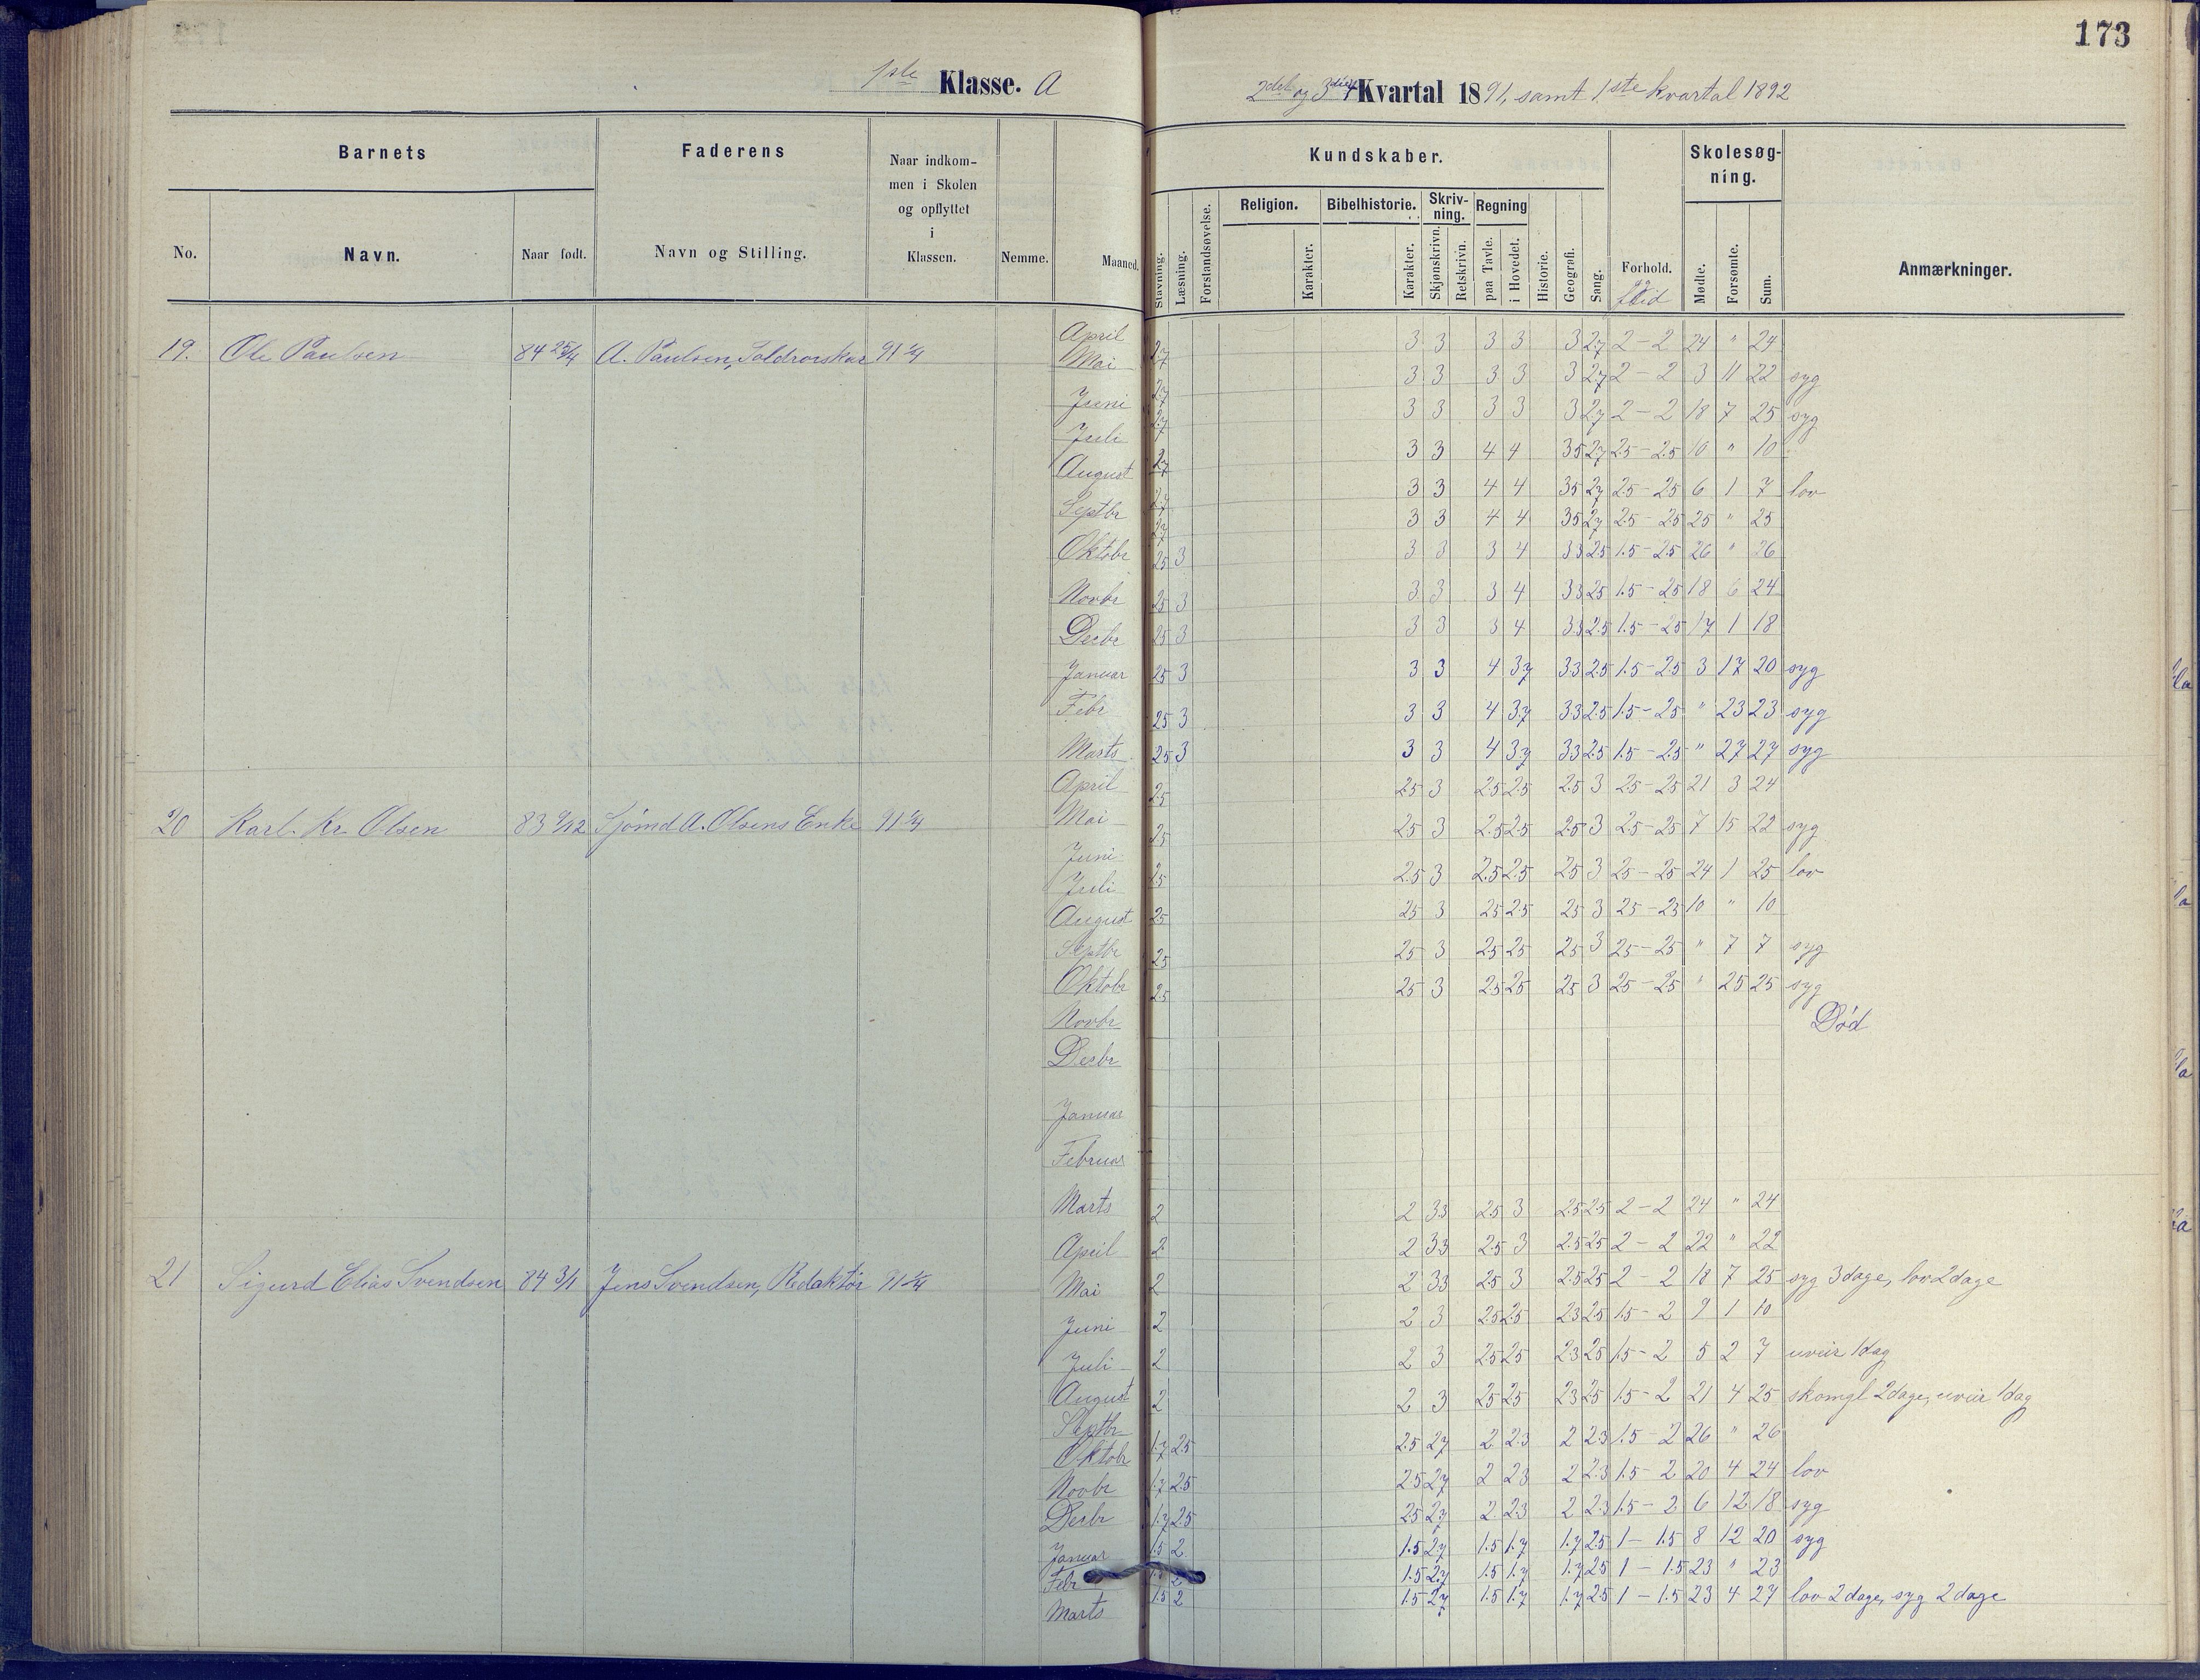 173
1ste Klasse. A
2det og 3die Kvartal 1891, samt 1ste kvartal 1892
Barnets
Faderens
Naar indkom-
men i Skolen
og opflyttet
i
Klassen.
Kundskaber.
Skolesøg-
ning.
No.
Navn.
Naar født.
Navn og Stilling.
Nemme.
Maaned.
Stavning.
Læsning.
Forstandsøvelse.
Religion.
Karakter.
Bibelhistorie.
Karakter.
Skriv-
ning.
Skjønskrivn.
Retskrivn.
Regning
paa Tavle.
i Hovedet.
Historie.
Geografi.
Sang.
Forhold.
flid
Mødte.
Forsømte.
Sum.
Anmærkninger.
April 3 3 3 3 3 27 2 - 2 24 " 24
19. Ole Paulsen 84 25/4 A. Paulsen, 91 1/4
Mai 27 3 3 3 3 3 27 2 - 2 3 11 22 syg
Juni 27 3 3 3 3 3 27 2 - 2 18 7 25 syg
Juli 27 3 3 4 4 35 27 25 - 25 10 " 10
August 27 3 3 4 4 35 27 25 - 25 6 1 7 lov
Septbr 27 3 3 4 4 35 27 25 - 25 25 " 25
Oktobr 25 3 3 3 3 4 33 25 1.5 - 25 26 " 26
Novbr 25 3 3 3 3 4 33 25 1.5 - 25 18 6 24
Decbr 25 3 3 3 3 4 33 25 1.5 - 25 17 1 18
Januar 25 3 3 3 4 37 33 25 1.5 - 25 3 17 20 syg
Febr 25 3 3 3 4 37 33 25 1.5 - 25 " 23 23 syg
Marts 25 3 3 3 4 37 33 25 1.5 - 25 " 27 27 syg
April 25 25 3 25 25 25 3 25 - 25 21 3 24
20 Karl. Kr. Olsen 83 9/12 Sjømd A. Olsens Enke 91 1/4
Mai 25 25 3 25 25 25 3 25 - 25 7 15 22 syg
Juni 25 25 3 25 25 25 3 25 - 25 24 1 25 lov
Juli
August 25 25 3 25 25 25 3 25 - 25 10 " 10
Septbr 25 25 3 25 25 25 3 25 - 25 " 7 7 syg
Oktobr 25 25 3 25 25 25 3 25 - 25 " 25 25 syg
Novbr Død
Desbr
Januar
Februar
Marts 2 2 33 25 3 25 25 2 - 2 24 " 24
April 2 2 33 25 3 25 25 2 - 2 22 " 22
21 Sigurd Elias Svendsen 84 3/1 Jens Svendsen, Redaktør 91 1/4
Mai 2 2 33 25 3 25 25 2 - 2 18 7 25 syg 3 dage, lov 2 dage
Juni 2 2 3 25 25 23 25 1.5 - 2 9 1 10
Juli 2 2 3 25 25 23 25 1.5 - 2 5 2 7 uveir 1 dag
August 2 2 3 25 25 23 25 1.5 - 2 21 4 25 skomgl 2 dage, uveir 1 dag
Septbr
Oktobr 1.7 25 25 27 2 23 2 23 1.5 - 2 26 " 26
Novbr 1.7 25 25 27 2 23 2 23 1.5 - 2 20 4 24 lov
Desbr 1.7 25 25 27 2 23 2 23 1.5 - 2 6 12 18 syg
Januar 1.5 2 1.5 27 1.5 1.7 1.7 25 1 - 1.5 8 12 20 syg
Febr 2 1.5 27 1.5 1.7 1.7 25 1 - 1.5 23 " 23
Marts 1.5 2 1.5 27 1.5 1.7 1.7 25 1 - 1.5 23 4 27 lov 2 dage, syg 2 dage